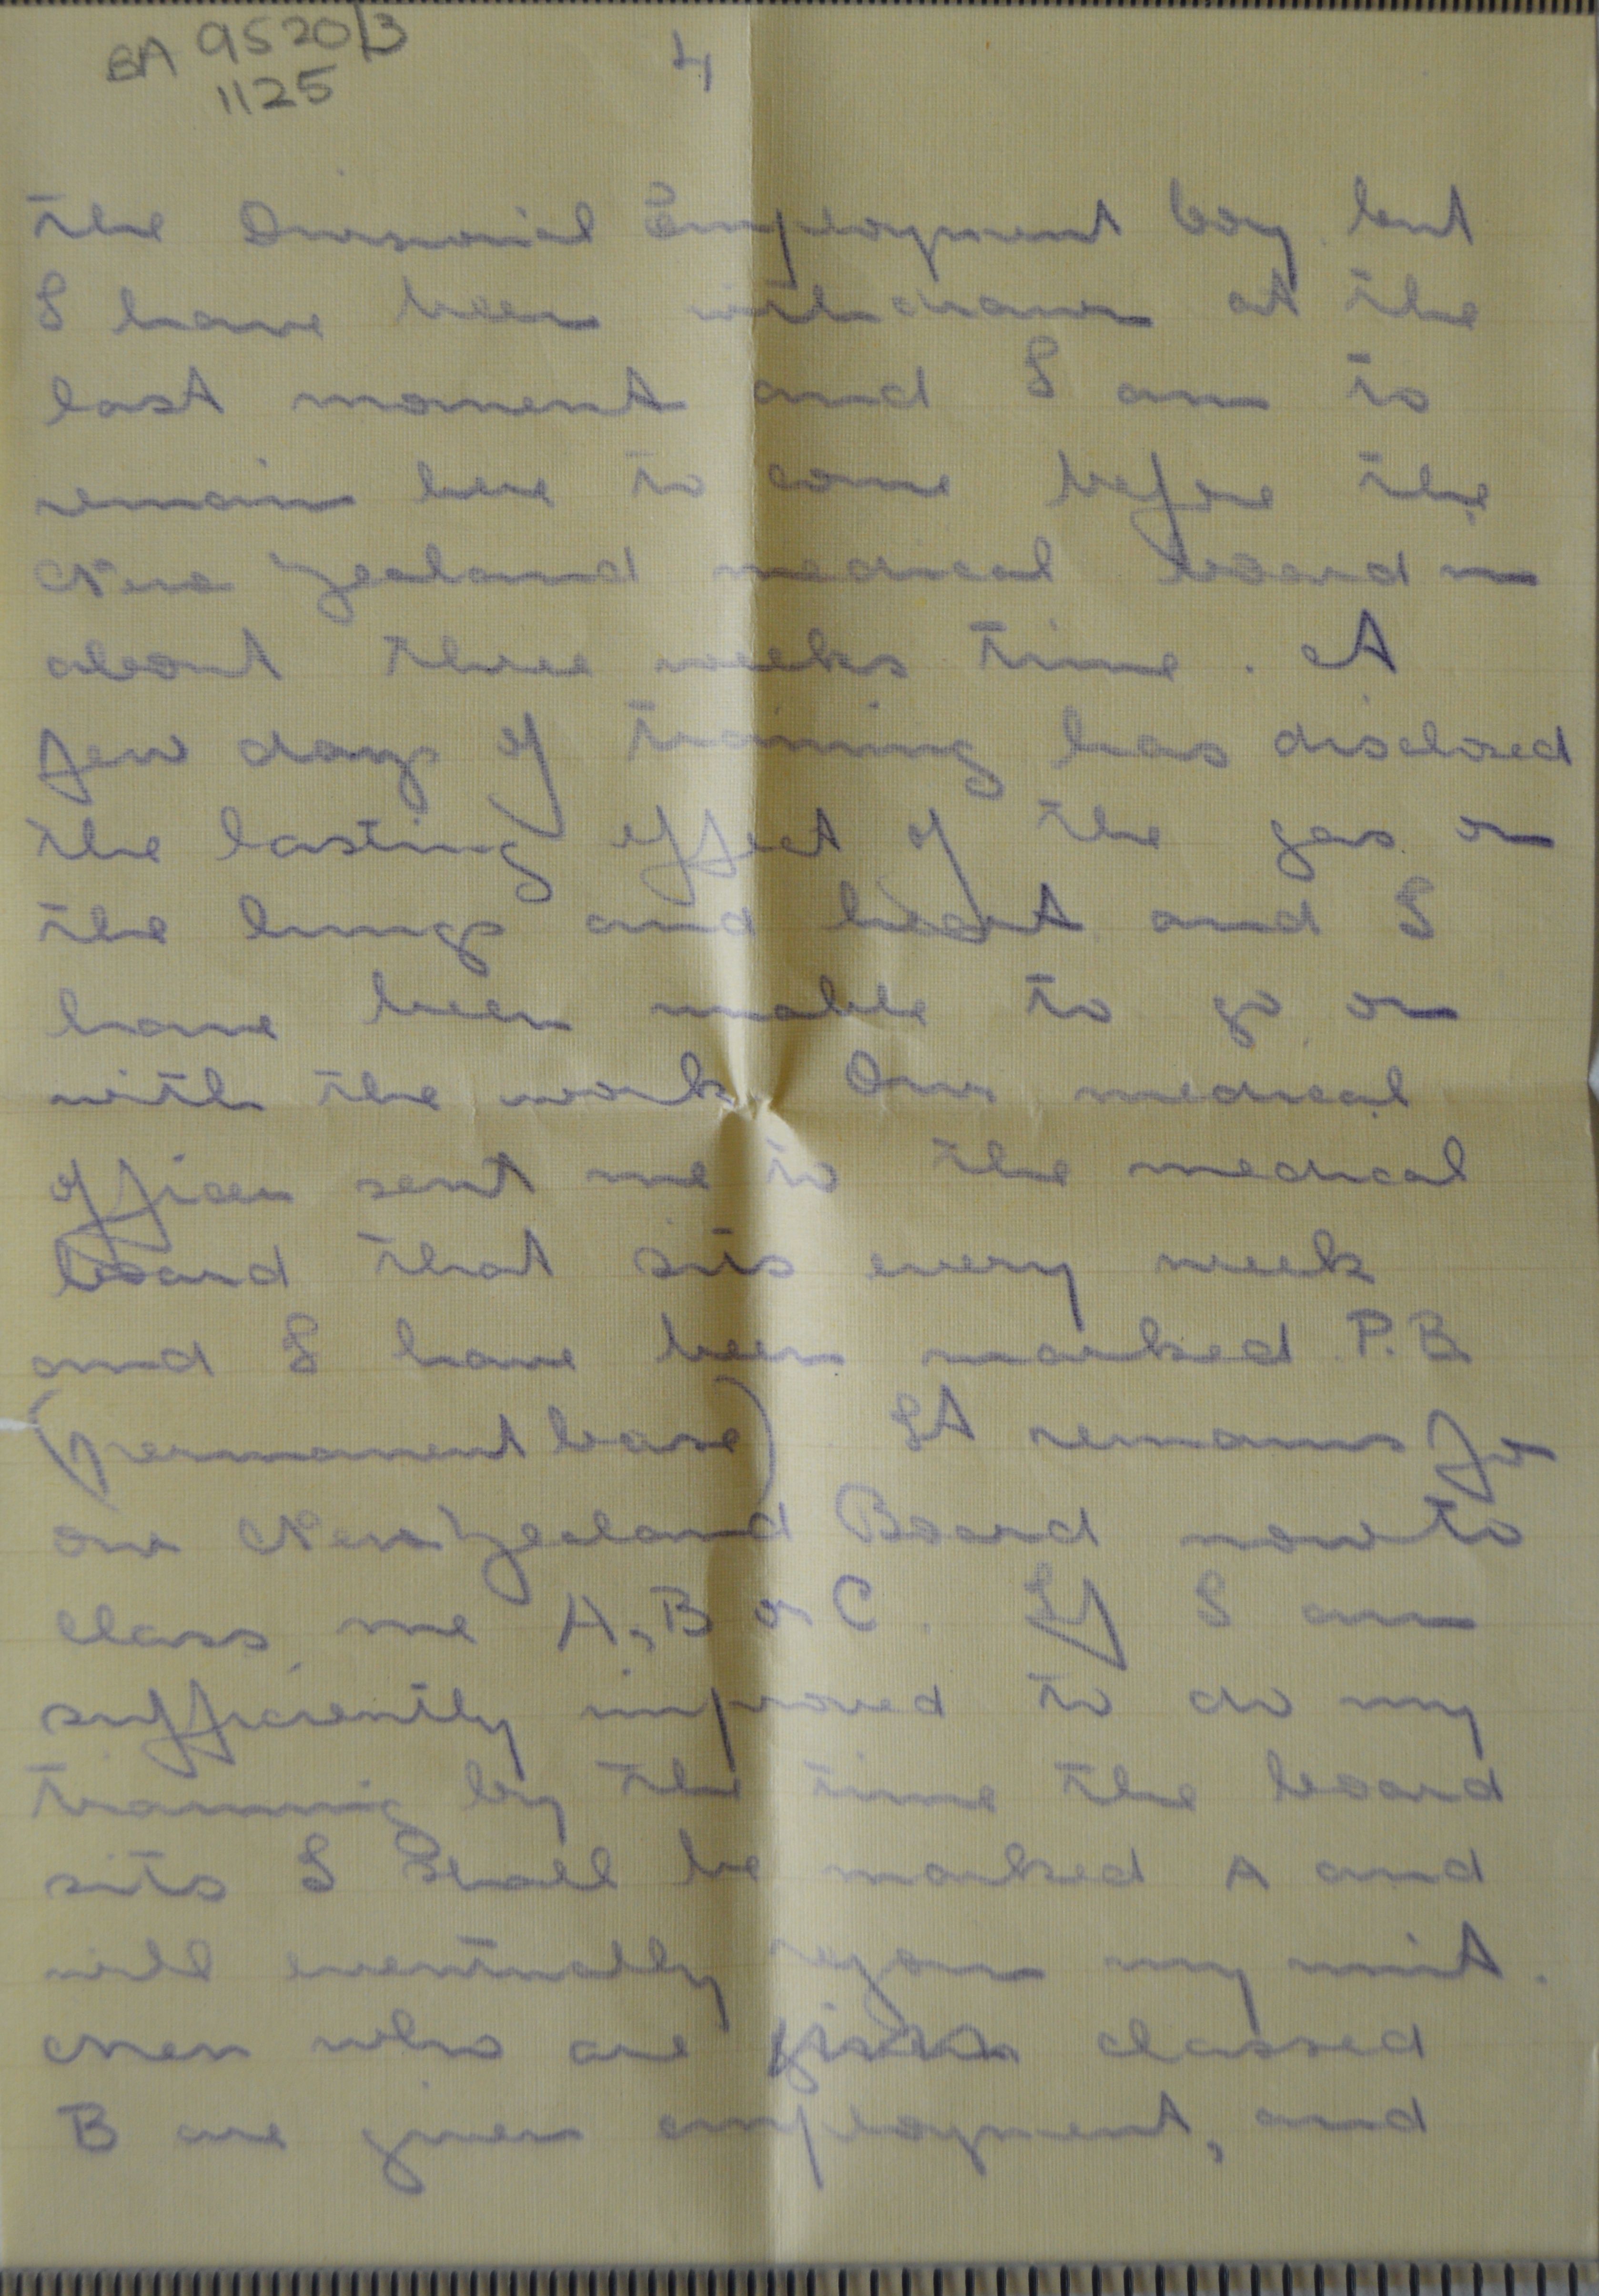 BA 9520/3
1125
4
the Divisional Employment Coy. but
I have been withdrawn at the
last moment and I am to
remain here to come before the
New Zealand medical board in
about three weeks time. A
few days of training has disclosed
the lasting effect of the gas on
the lungs and heart and I
have been unable to go on
with the work. Our medical
officer sent me to the medical
board that sits every week
and I have been marked P.B.
(permanent base) It remains for
our New Zealand Board now to
class me A, B or C. If I am
sufficiently improved to do my
training by the time the board
sits I shall be marked A and
will eventually rejoin my unit.
Men who are given classed
B are given employment, and